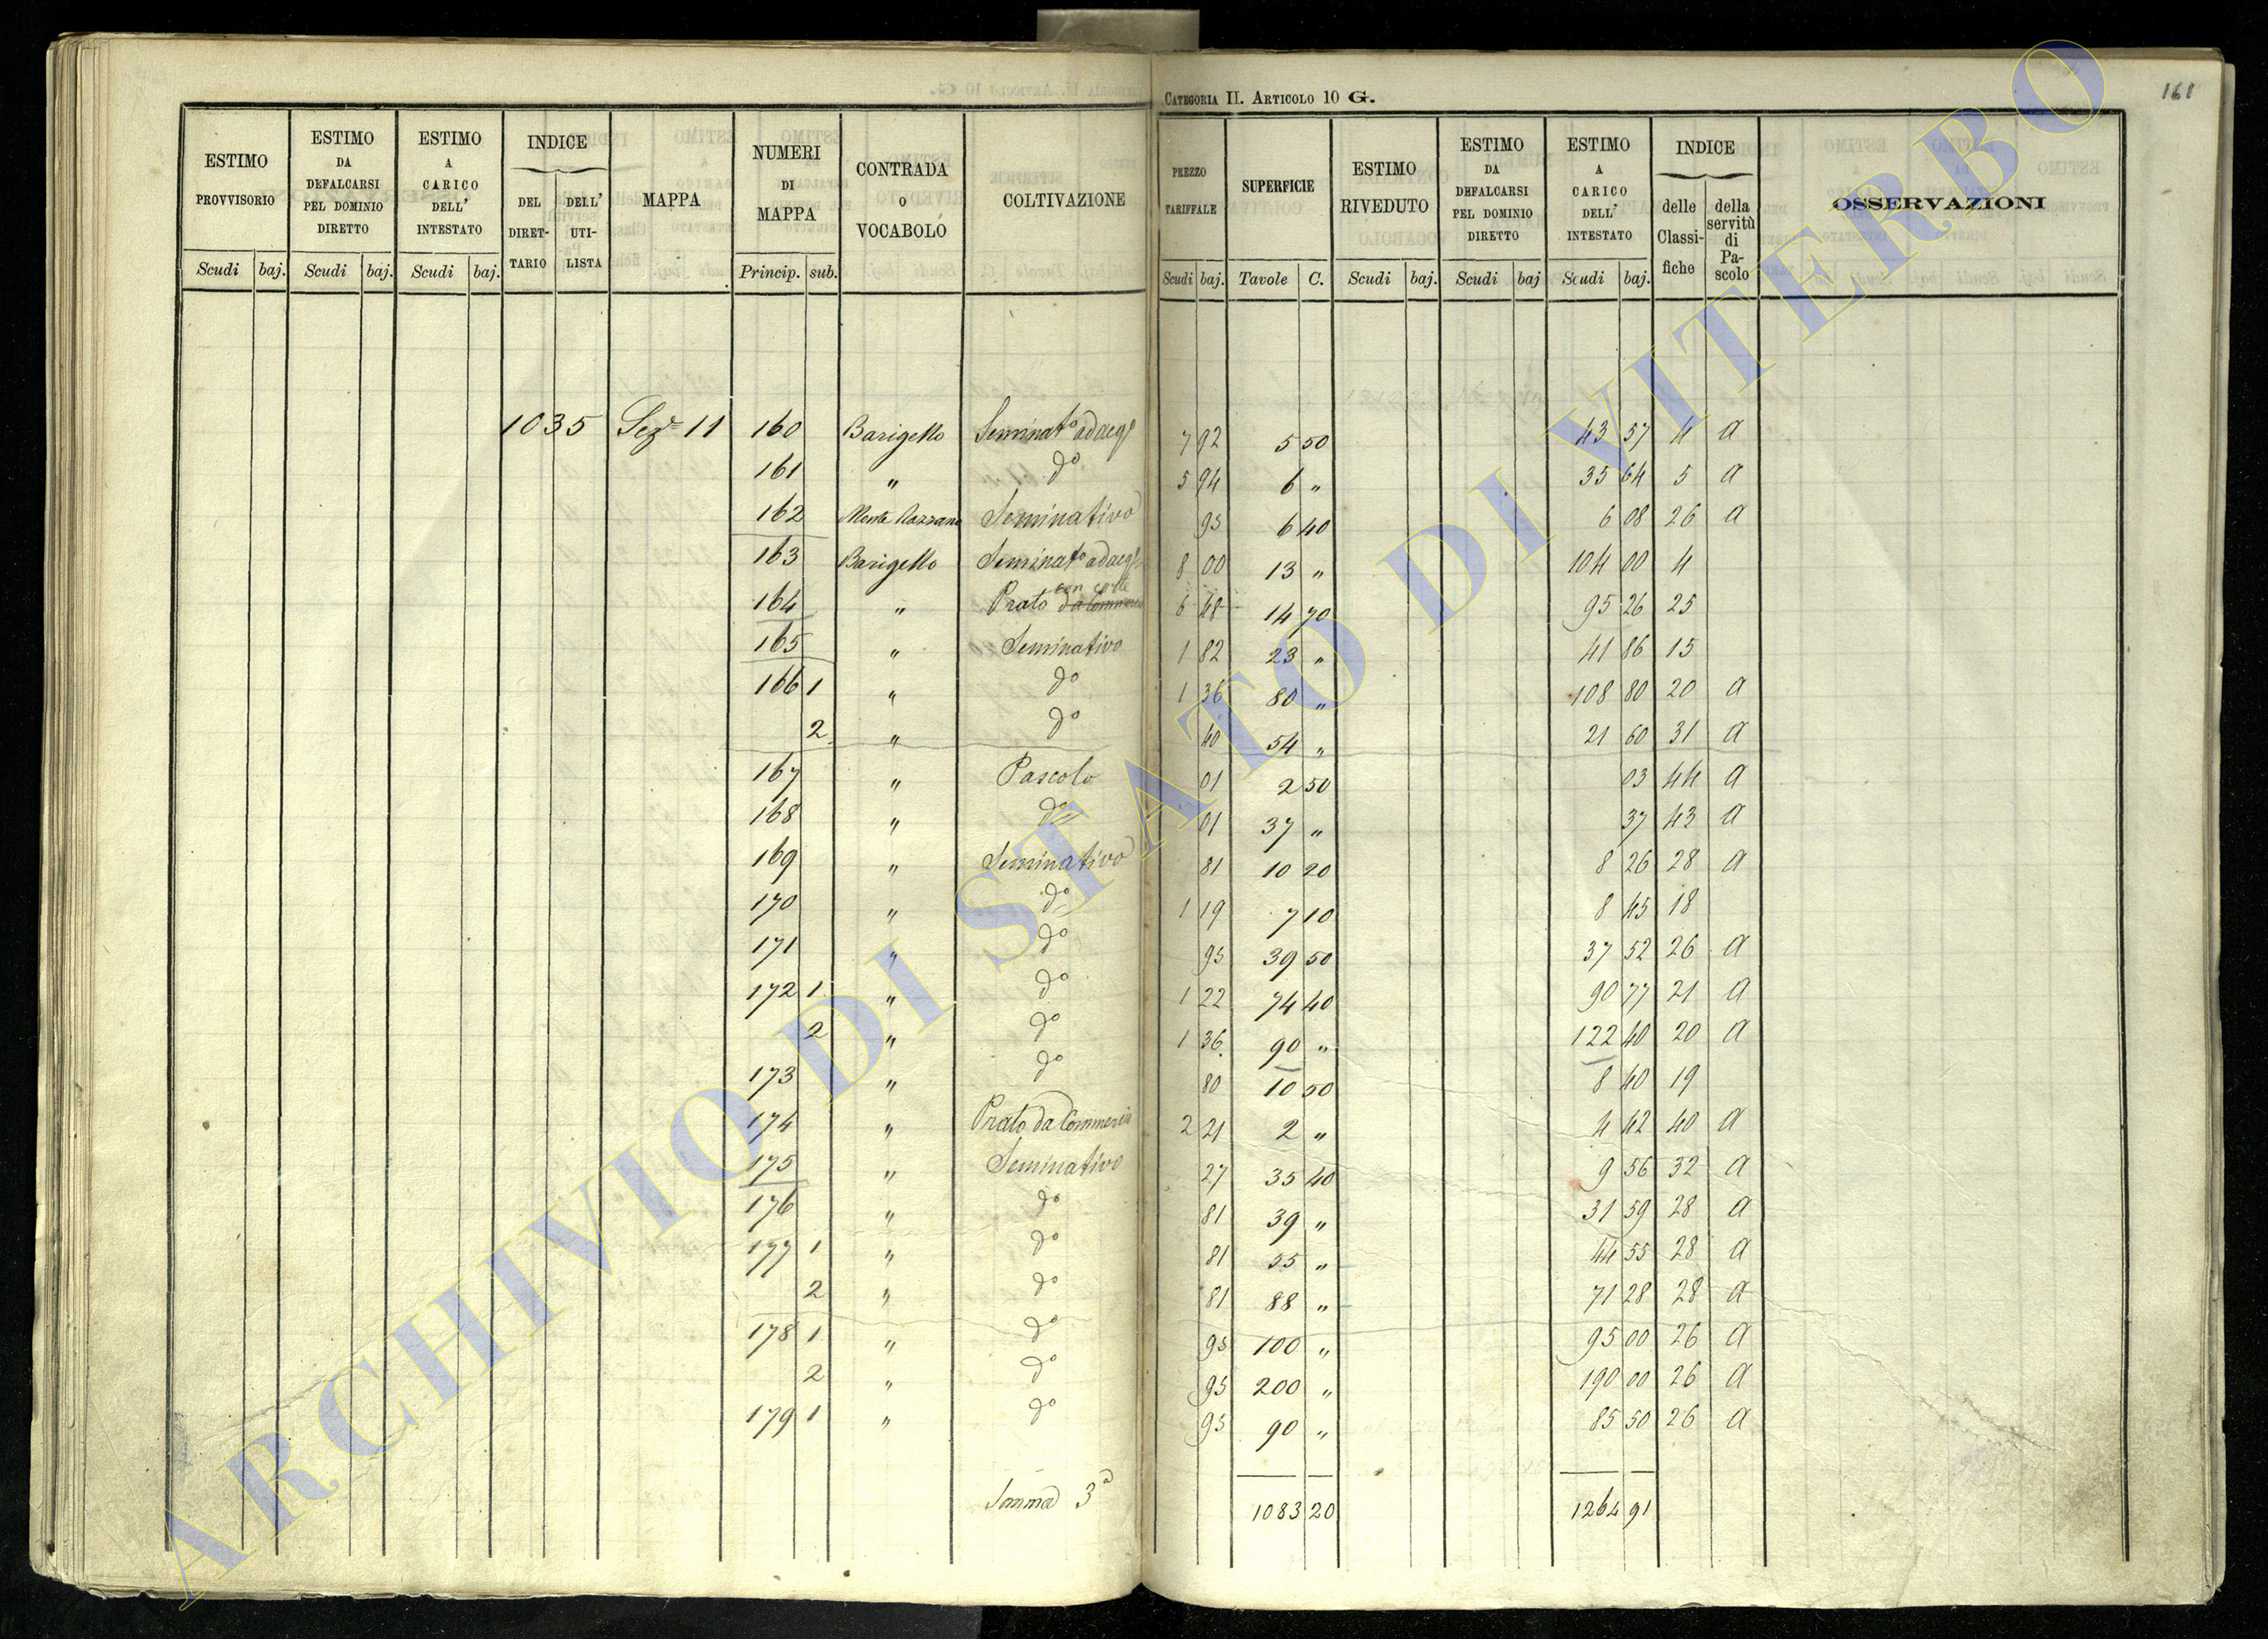 CATEGORIA II. ARTICOLO 10 G.
168
ESTIMO PROVVISORIO | ESTIMO DA DEFALCARSI PEL DOMINIO DIRETTO | ESTIMO A CARICO DELL' INTESTATO | INDICE | MAPPA | NUMERI DI MAPPA | CONTRADA O VOCABOLO | COLTIVAZIONE | PREZZO TARIFFALE | SUPERFICIE | ESTIMO RIVEDUTO | ESTIMO DA DEFALCARSI PEL DOMINIO DIRETTO | ESTIMO A CARICO DELL' INTESTATO | INDICE | OSSERVAZIONI
DEL DIRET-TARIO | DELL' UTI-LISTA | delle Classi-fiche | della servitù di Pa-scolo
Scudi | baj. | Scudi | baj. | Scudi | baj. | Princip. | sub. | Scudi | baj. | Tavole | C. | Scudi | baj. | Scudi | baj | Scudi | baj.
1035 Sezᵉ 11 160 Barigello Seminatᵒ adacqᵒ 7 92 5 50 43 57 4 a
161 " dᵒ 5 94 6 " 35 64 5 a
162 Monte Razzano Seminativo 95 6 40 6 08 26 a
163 Barigello Seminatᵒ adacqᵒ 8 00 13 " 104 00 4
164 " Prato da Commercio con corte 6 48 14 70 95 26 25
165 " Seminativo 1 82 23 " 41 86 15
166 1 " dᵒ 1 36 80 " 108 80 20 a
2 " dᵒ 40 54 " 21 60 31 a
167 " Pascolo 01 2 50 03 44 a
168 " dᵒ 01 37 " 37 43 a
169 " Seminativo 81 10 20 8 26 28 a
170 " dᵒ 1 19 7 10 8 45 18
171 " dᵒ 95 39 50 37 52 26 a
172 1 " dᵒ 1 22 74 40 90 77 21 a
2 " dᵒ 1 36 90 " 122 40 20 a
173 " dᵒ 80 10 50 8 40 19
174 " Prato da Commercio 2 21 2 " 4 42 40 a
175 " Seminativo 27 35 40 9 56 32 a
176 " dᵒ 81 39 " 31 59 28 a
177 1 " dᵒ 81 55 " 44 55 28 a
2 " dᵒ 81 88 " 71 28 28 a
178 1 " dᵒ 95 100 " 95 00 26 a
2 " dᵒ 95 200 " 190 00 26 a
179 1 " dᵒ 95 90 " 85 50 26 a
Somma 3ᵃ 1083 20 1264 91
ARCHIVIO DI STATO DI VITERBO